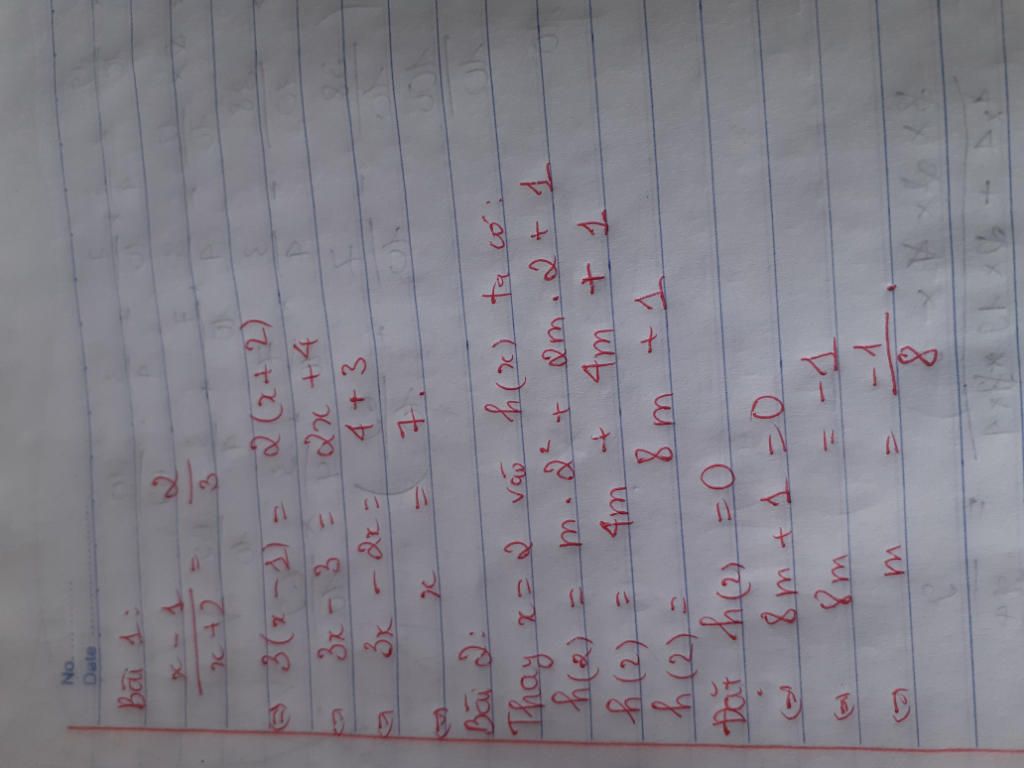 No.
Date
Bài 1:
x - 1 / x + 2 = 2 / 3
(=) 3(x - 1) = 2(x + 2)
(=) 3x - 3 = 2x + 4
(=) 3x - 2x = 4 + 3
(=) x = 7.
Bài 2:
Thay x = 2 vào h(x) ta có:
h(2) = m . 2² + 2m . 2 + 1
h(2) = 4m + 4m + 1
h(2) = 8m + 1
Đặt h(2) = 0
(=) 8m + 1 = 0
(=) 8m = -1
(=) m = -1 / 8 .